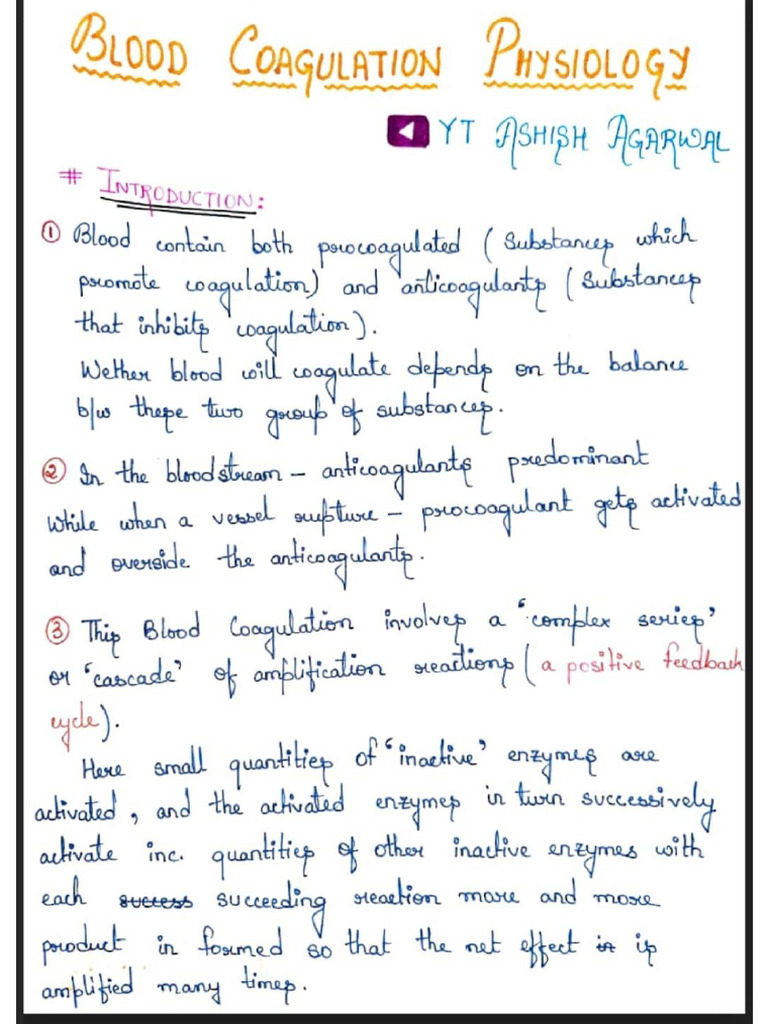 BLOOD COAGULATION PHYSIOLOGY
YT ASHISH AGARWAL
# INTRODUCTION:
① Blood contain both procoagulated (Substances which
promote coagulation) and anticoagulants (Substances
that inhibits coagulation).
Wether blood will coagulate depends on the balance
b/w these two group of substances.
② In the bloodstream – anticoagulants predominant
While when a vessel rupture – procoagulant gets activated
and override the anticoagulants.
③ This Blood Coagulation involves a 'complex series'
or 'cascade' of amplification reactions (a positive feedback
cycle).
Here small quantities of 'inactive' enzymes are
activated, and the activated enzymes in turn successively
activate inc. quantities of other inactive enzymes with
each success succeeding reaction more and more
product in formed so that the net effect in is
amplified many times.